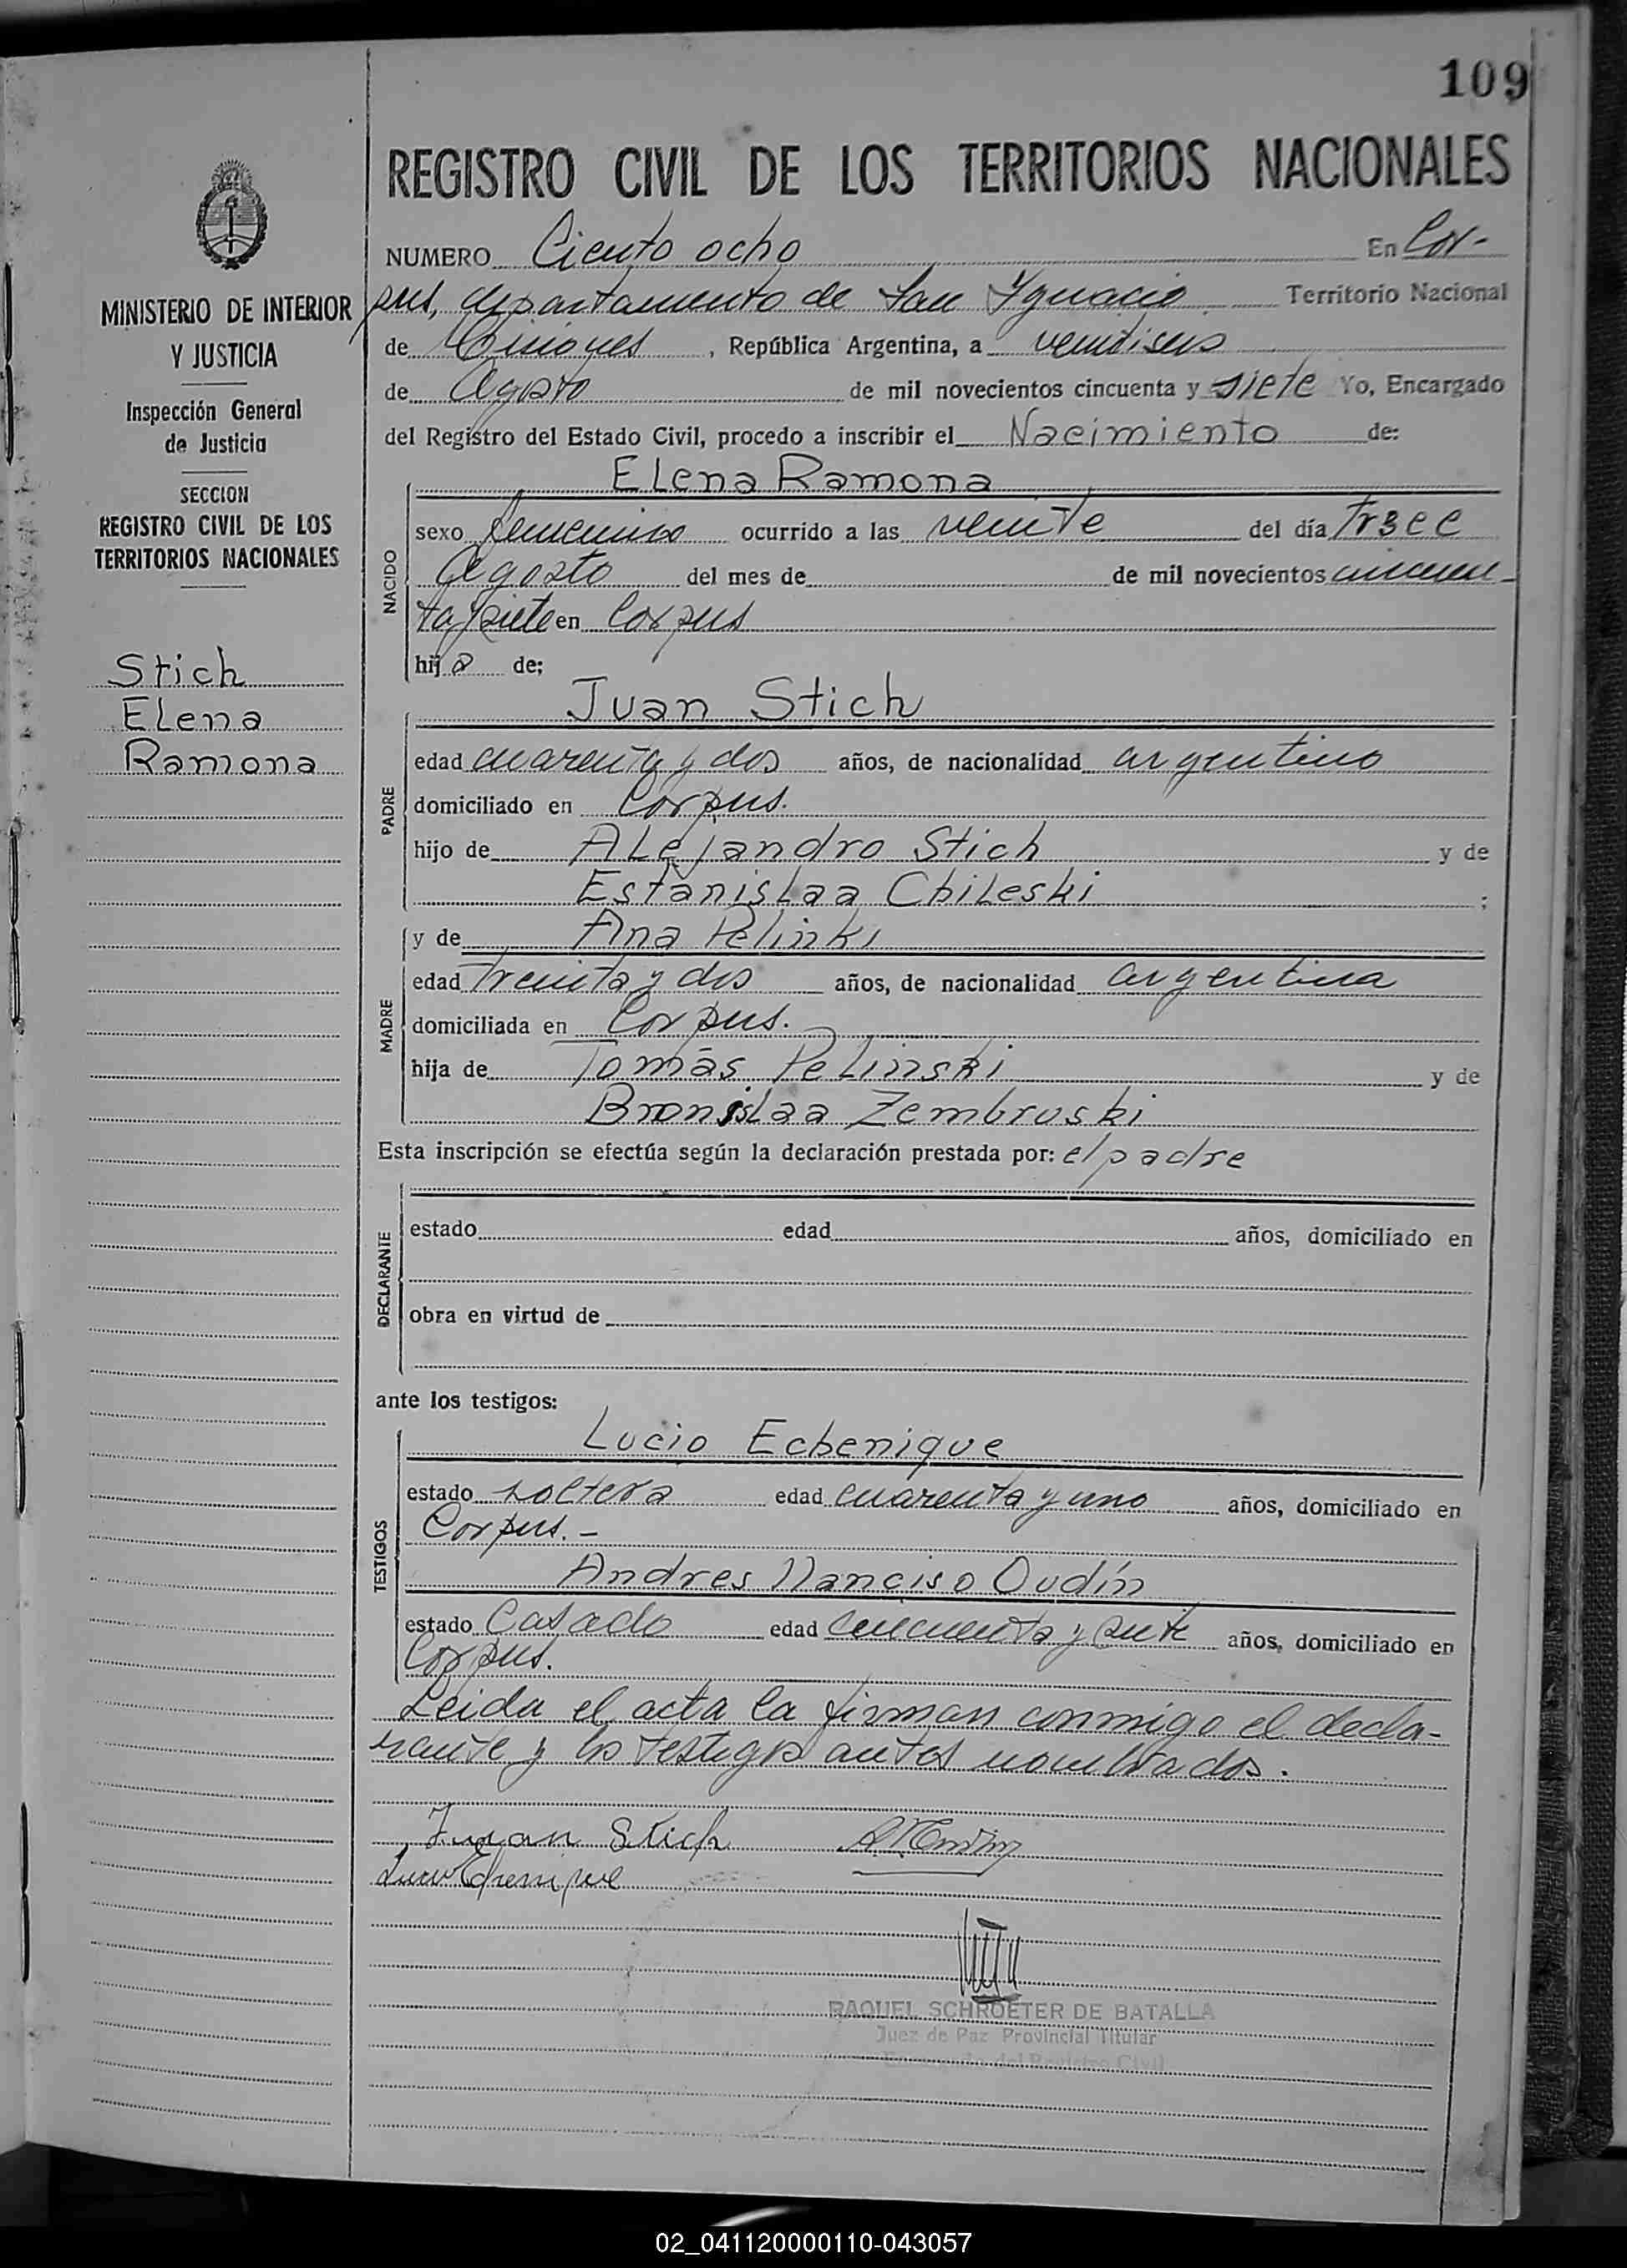 109
REGISTRO CIVIL DE LOS TERRITORIOS NACIONALES
NUMERO Ciento ocho En Cor-
pus, departamento de San Ygnacio Territorio Nacional
de Misiones, República Argentina, a veintiseis
de Agosto de mil novecientos cincuenta y siete Yo, Encargado
del Registro del Estado Civil, procedo a inscribir el Nacimiento de:
MINISTERIO DE INTERIOR
Y JUSTICIA
Inspección General
de Justicia
SECCION
REGISTRO CIVIL DE LOS
TERRITORIOS NACIONALES
Stich
Elena
Ramona
NACIDO
Elena Ramona
sexo femenino ocurrido a las veinte del día trece
Agosto del mes de de mil novecientos cincuen-
ta y siete en Corpus
hija de;
PADRE
Juan Stich
edad cuarenta y dos años, de nacionalidad argentino
domiciliado en Corpus.
hijo de Alejandro Stich y de
Estanislaa Chileski ;
MADRE
y de Ana Pelinki
edad treinta y dos años, de nacionalidad argentina
domiciliada en Corpus.
hija de Tomás Pelinski y de
Bronislaa Zembruski
Esta inscripción se efectúa según la declaración prestada por: el padre
DECLARANTE
estado edad años, domiciliado en
obra en virtud de
ante los testigos:
TESTIGOS
Lucio Echenique
estado soltera edad cuarenta y uno años, domiciliado en
Corpus.-
Andres Narciso Oudín
estado Casado edad cincuenta y siete años, domiciliado en
Corpus.
Leida el acta la firman conmigo el decla-
rante y los testigos antes nombrados.
Juan Stich
Lucio Echenique
RAQUEL SCHROETER DE BATALLA
Juez de Paz Provincial Titular
Encargada del Registro Civil
02_041120000110-043057